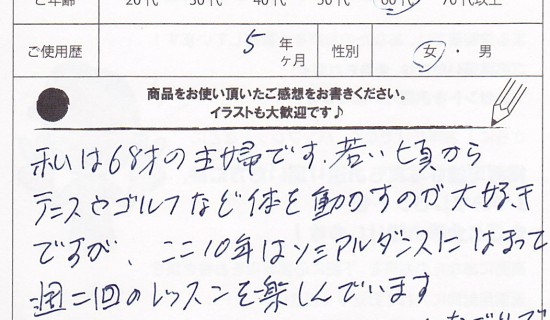 ご年齢 20代 30代 40代 50代 60代 70代以上
ご使用歴 5年 ヶ月 性別 女・男
商品をお使い頂いたご感想をお書きください。
イラストも大歓迎です♪
私は68才の主婦です。若い頃から
テニスやゴルフなど体を動かすのが大好き
ですが、ここ10年はソシアルダンスにはまって
週二回のレッスンを楽しんでいます